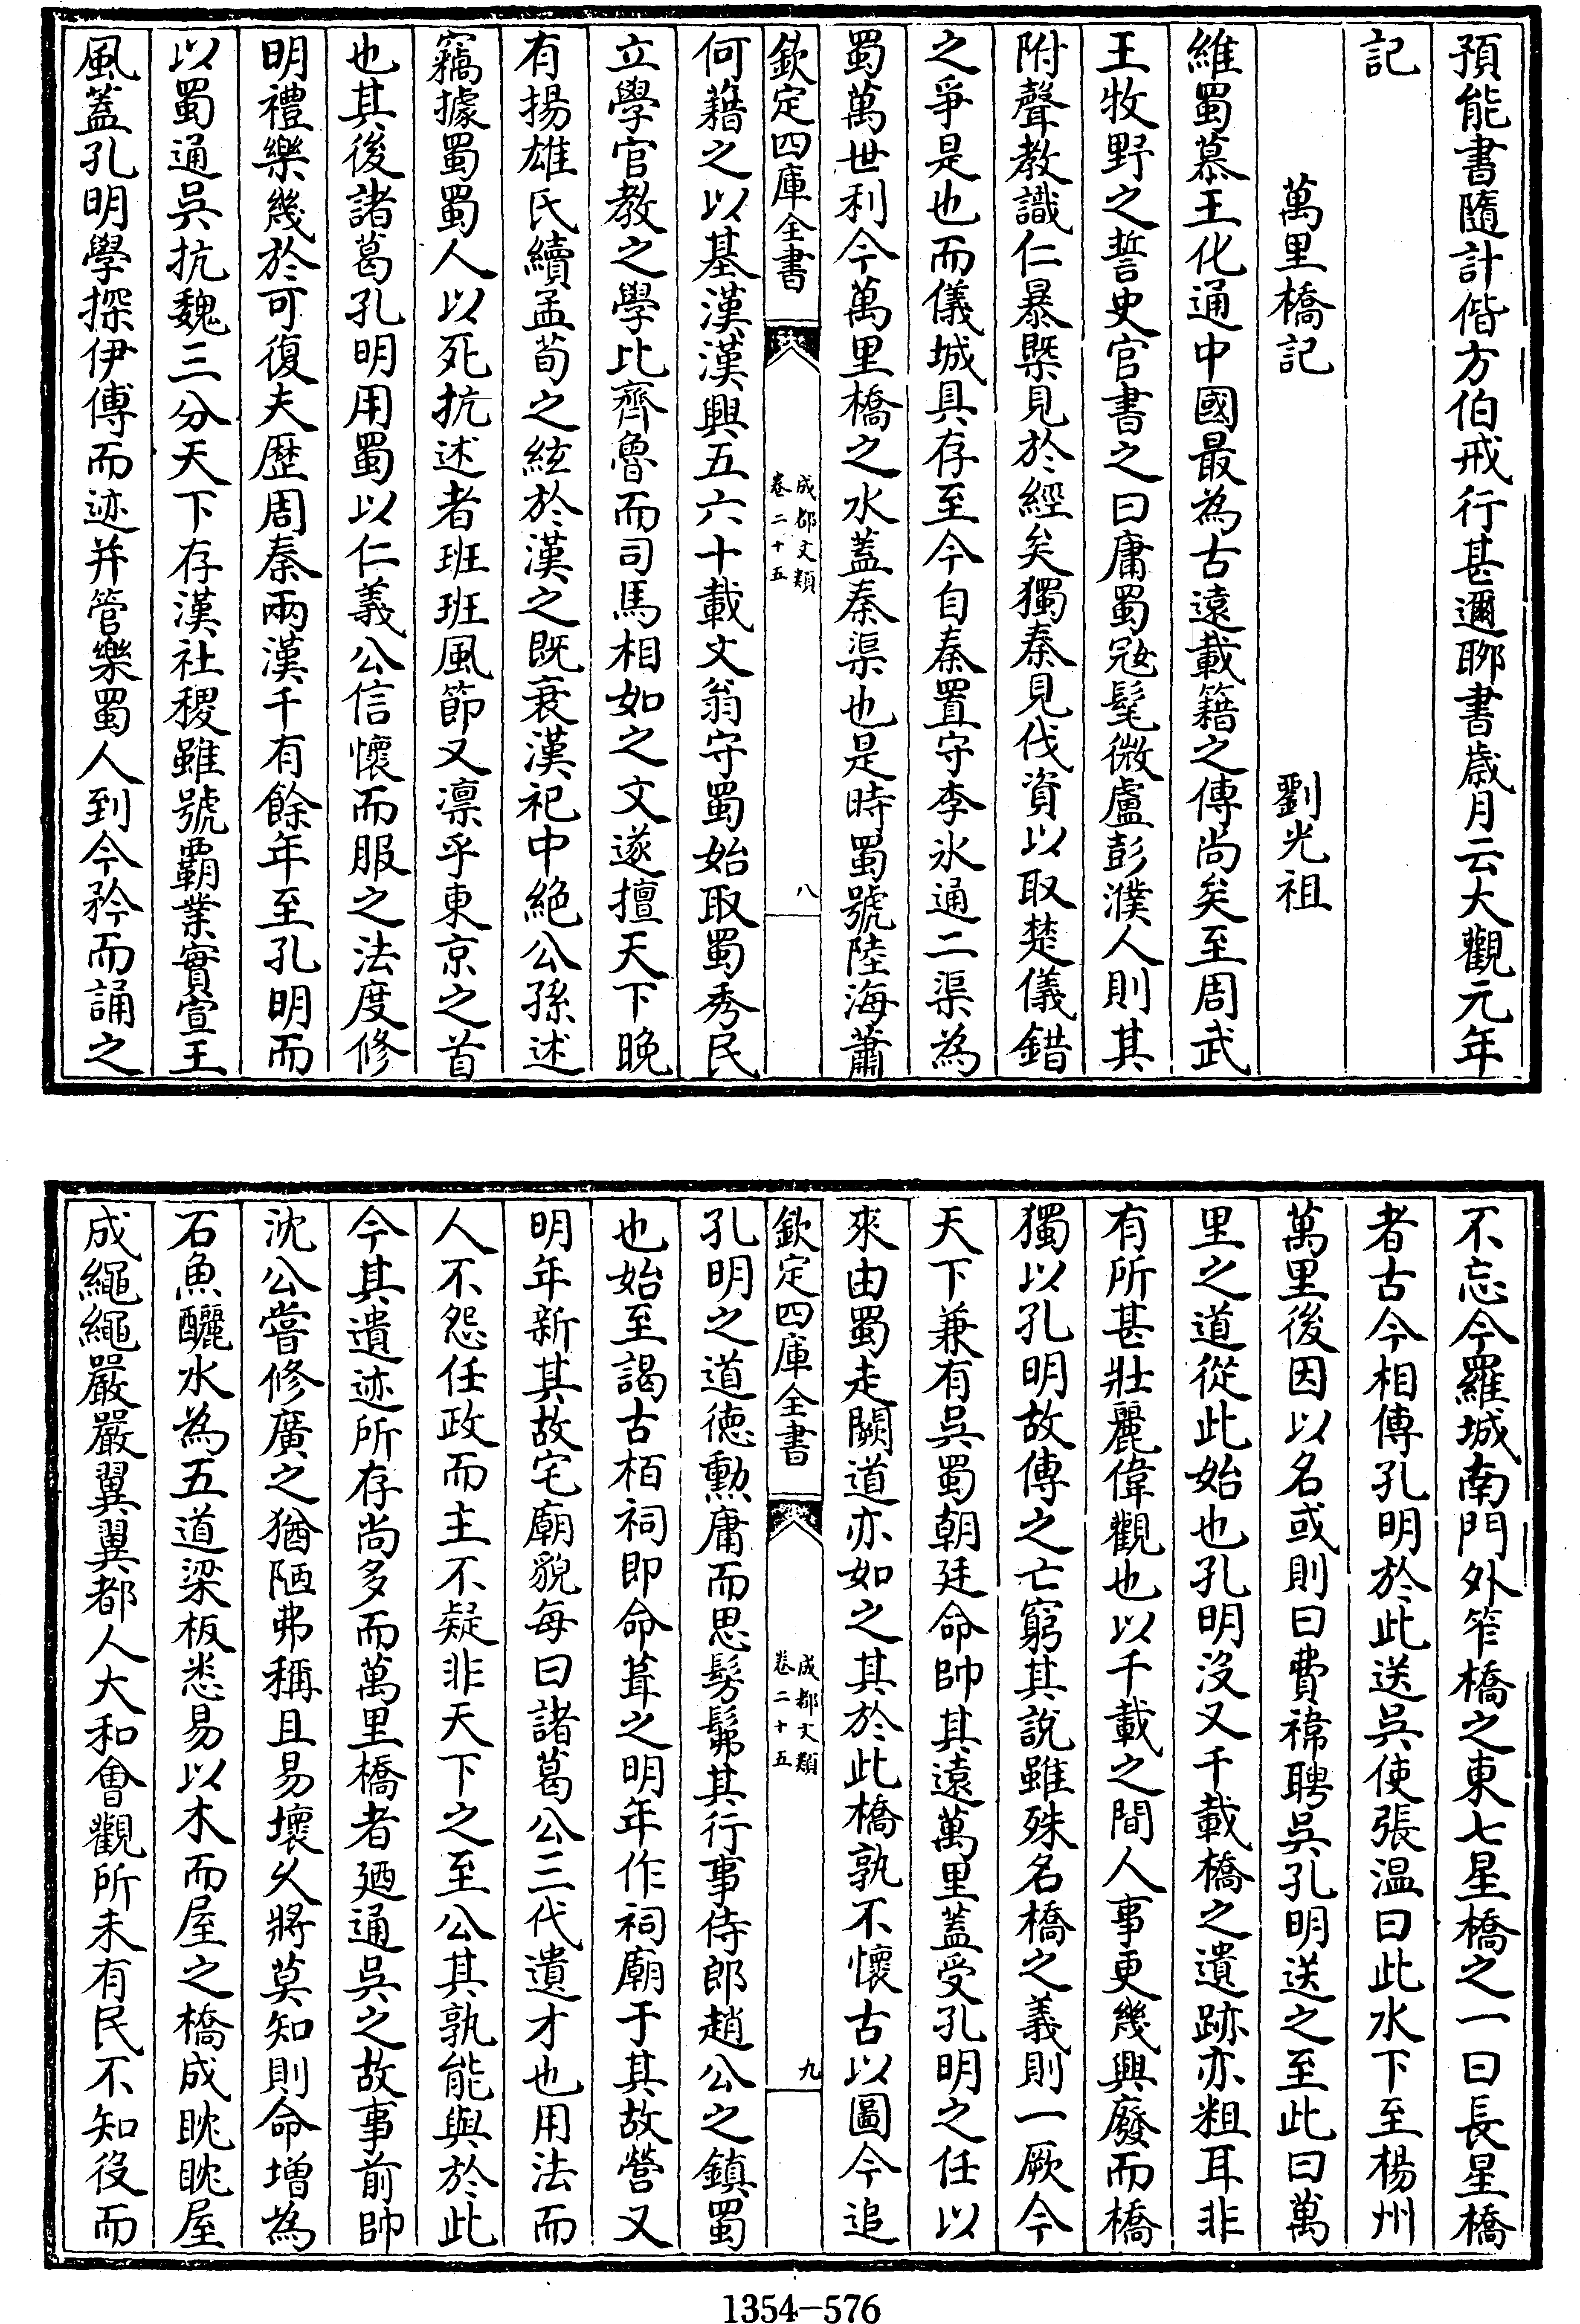 預能書隨計偕方伯戒行甚邇聊書歲月云大觀元年
記
萬里橋記 劉光祖
維蜀慕王化通中國最為古遠載籍之傳尚矣至周武
王牧野之誓史官書之曰庸蜀㓂髦微盧彭濮人則其
附聲教識仁暴槩見於經矣獨秦見伐資以取楚儀錯
之爭是也而儀城具存至今自秦置守李氷通二渠為
蜀萬世利今萬里橋之水蓋秦渠也是時蜀號陸海蕭
欽定四庫全書
成都文類
卷二十五
八
何藉之以基漢漢興五六十載文翁守蜀始取蜀秀民
立學官教之學比齊魯而司馬相如之文遂擅天下晚
有揚雄氏續孟荀之絃於漢之既衰漢祀中絕公孫述
竊據蜀蜀人以死抗述者班班風節又凛乎東京之首
也其後諸葛孔明用蜀以仁義公信懷而服之法度修
明禮樂幾於可復夫歴周秦兩漢千有餘年至孔明而
以蜀通吳抗魏三分天下存漢社稷雖號霸業實宣王
風蓋孔明學探伊傅而迹并管樂蜀人到今矜而誦之
不忘今羅城南門外笮橋之東七星橋之一曰長星橋
者古今相傳孔明於此送吳使張温曰此水下至楊州
萬里後因以名或則曰費禕聘吳孔明送之至此曰萬
里之道從此始也孔明没又千載橋之遺跡亦粗耳非
有所甚壯麗偉觀也以千載之間人事更幾興廢而橋
獨以孔明故傳之亡窮其說雖殊名橋之義則一厥今
天下兼有吳蜀朝廷命帥其遠萬里蓋受孔明之任以
來由蜀走闕道亦如之其於此橋孰不懷古以圖今追
欽定四庫全書
成都文類
卷二十五
九
孔明之道德勲庸而思髣髴其行事侍郎趙公之鎮蜀
也始至謁古栢祠即命葺之明年作祠廟于其故營又
明年新其故宅廟貌每曰諸葛公三代遺才也用法而
人不怨任政而主不疑非天下之至公其孰能與於此
今其遺迹所存尚多而萬里橋者廼通吳之故事前帥
沈公嘗修廣之猶陋弗稱且易壞乆將莫知則命增為
石魚釃水為五道梁板悉易以木而屋之橋成眈眈屋
成繩繩嚴嚴翼翼都人大和會觀所未有民不知役而
1354—576